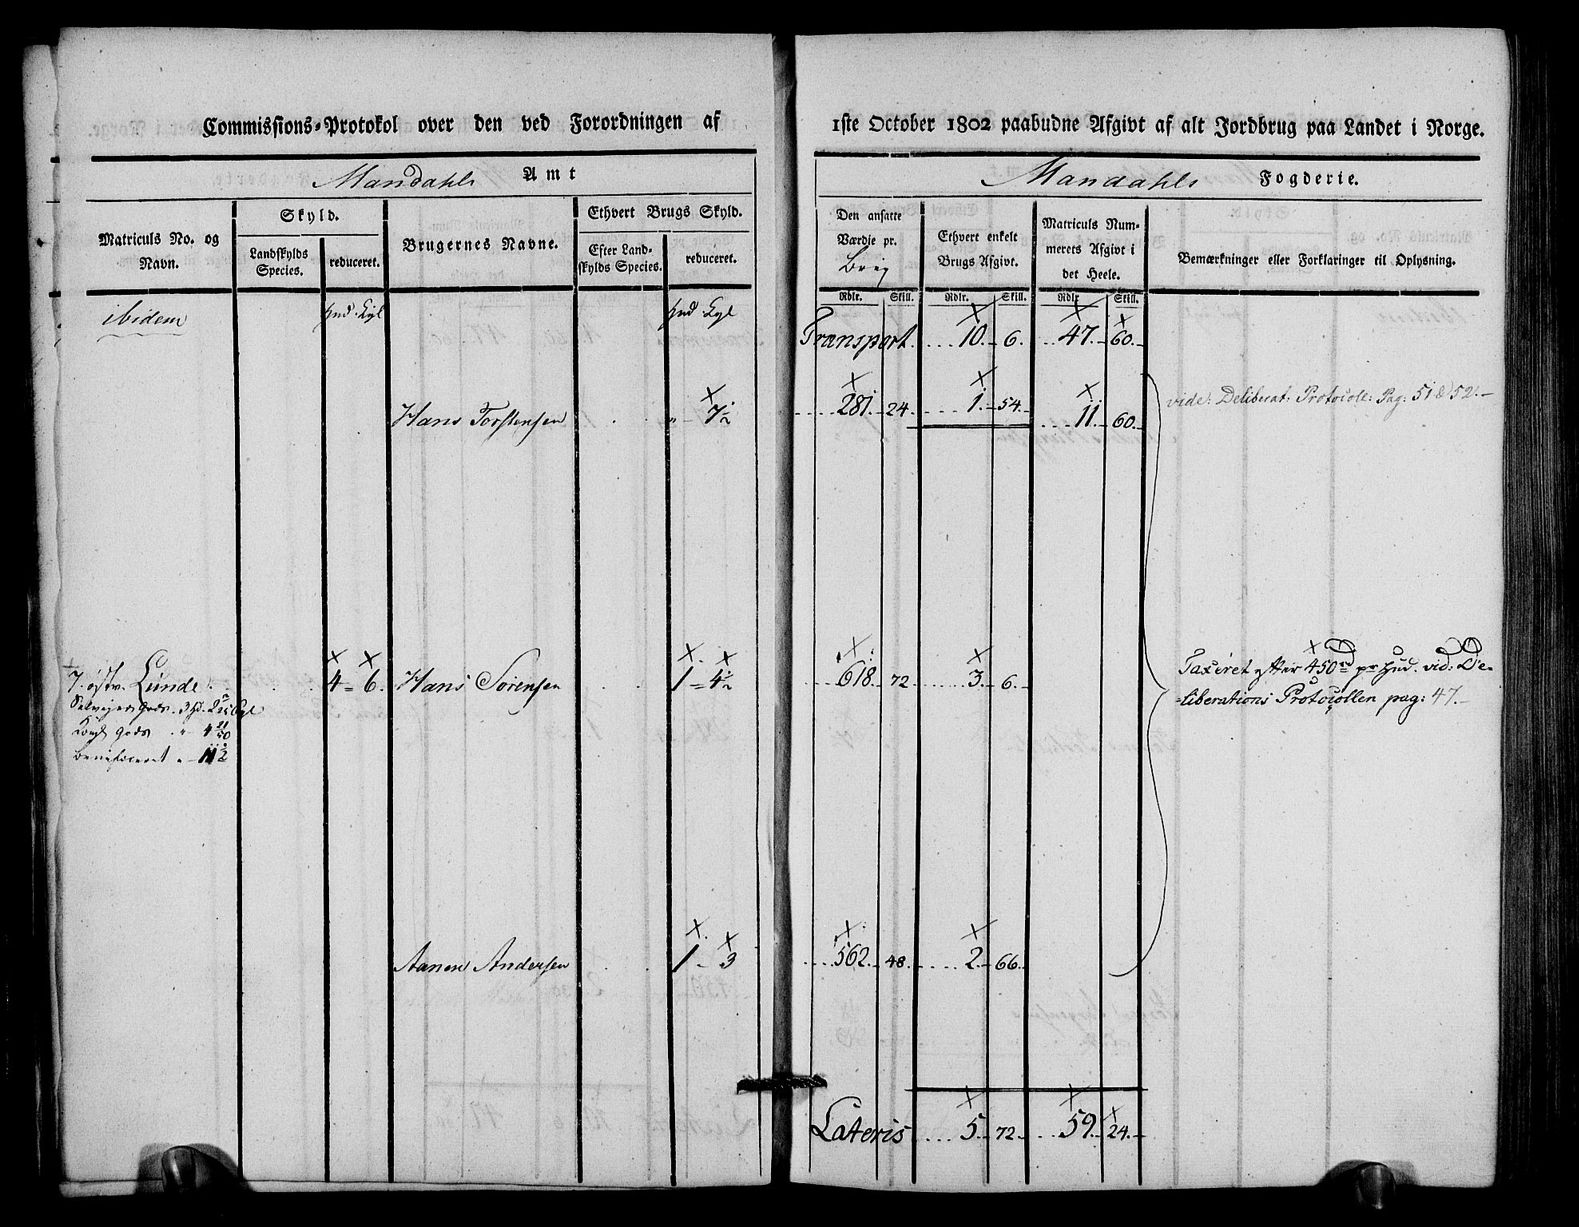 Commissions-Protokol over den ved Forordningen af 1ste October 1802 paabudne Afgivt af alt Jordbrug paa Landet i Norge.
Mandahls Amt
Mandahls Fogderie.
Matriculs No. og Navn.
Skyld.
Landskylds Species.
reduceret.
Brugernes Navne.
Ethvert Brugs Skyld.
Efter Landskylds Species.
reduceret.
Den ansatte Værdie pr.
Ethvert enkelt Brugs Afgivt.
Matriculs Nummerets Afgivt i det Heele.
Bemærkninger eller Forklaringer til Oplysning.
Rdlr. Skill. Rdlr. Skill. Rdlr. Skill.
ibidem
Hud Kgl
Hud Kgl
Transport 10. 6. 47. 60.
Hans Torstensen " 7½ 281. 24. 1. 54. 11. 60.
vide: Deliberat: Protocoll: Pag: 51 & 52.
7. østr. Lunde 4 = 6. Hans Sørensen 1 = 4½ 618. 72. 3. 6.
Taxeret efter 450rd pr Hud. vid: De-
=liberations Protocollen pag: 47.
Selveiergods. 3
gods
beneficeret
Aanen Andersen 1 - 3 562. 48. 2. 66.
Lateris 5. 72. 59. 24.